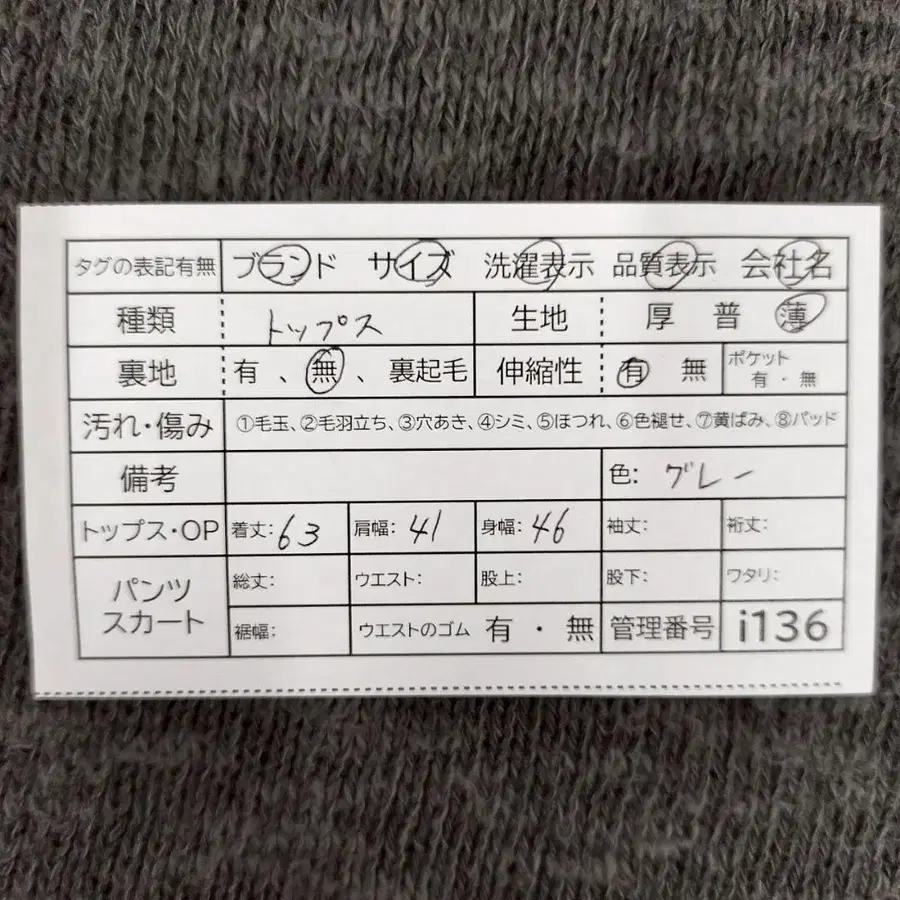 タグの表記有無 ブランド サイズ 洗濯表示 品質表示 会社名
種類 トップス 生地 厚 普 薄
裏地 有 、 無 、 裏起毛 伸縮性 有 無 ポケット 有 ・ 無
汚れ・傷み ①毛玉、②毛羽立ち、③穴あき、④シミ、⑤ほつれ、⑥色褪せ、⑦黄ばみ、⑧パッド
備考 色: グレー
トップス・OP 着丈: 63 肩幅: 41 身幅: 46 袖丈: 裄丈:
パンツ スカート 総丈: ウエスト: 股上: 股下: ワタリ:
裾幅: ウエストのゴム 有 ・ 無 管理番号 i136